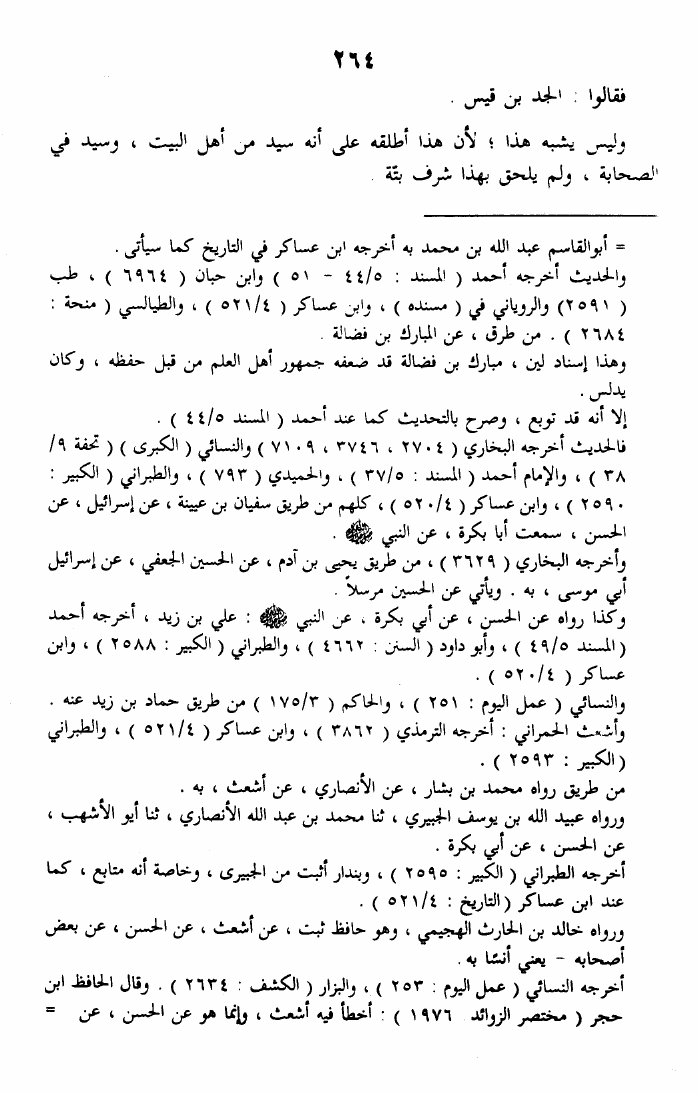 ٢٦٤
فقالوا : الجد بن قيس .
وليس يشبه هذا ؛ لأن هذا أطلقه على أنه سيد من أهل البيت ، وسيد في
الصحابة ، ولم يلحق بهذا شرف بتّة .
= أبوالقاسم عبد الله بن محمد به أخرجه ابن عساكر في التاريخ كما سيأتى .
والحديث أخرجه أحمد ( المسند : ٤٤/٥ - ٥١ ) وابن حبان ( ٦٩٦٤ ) ، طب
( ٢٥٩١) والروياني في ( مسنده ) ، وابن عساكر ( ٥٢١/٤ ) ، والطيالسي ( منحة :
٢٦٨٤ ) . من طرق ، عن المبارك بن فضالة .
وهذا إسناد لين ، مبارك بن فضالة قد ضعفه جمهور أهل العلم من قبل حفظه ، وكان
يدلس .
إلا أنه قد توبع ، وصرح بالتحديث كما عند أحمد ( المسند ٤٤/٥ ) .
فالحديث أخرجه البخاري ( ٢٧٠٤ ، ٣٧٤٦ ، ٧١٠٩ ) والنسائي ( الكبرى ) ( تحفة ٩/
٣٨ ) ، والإمام أحمد ( المسند : ٣٧/٥ ) ، والحميدي ( ٧٩٣ ) ، والطبراني ( الكبير :
٢٥٩٠ ) ، وابن عساكر ( ٥٢٠/٤ ) ، كلهم من طريق سفيان بن عيينة ، عن إسرائيل ، عن
الحسن ، سمعت أبا بكرة ، عن النبي ﷺ .
وأخرجه البخاري ( ٣٦٢٩ ) ، من طريق يحيى بن آدم ، عن الحسين الجعفي ، عن إسرائيل
أبي موسى ، به . ويأتي عن الحسين مرسلاً .
وكذا رواه عن الحسن ، عن أبي بكرة ، عن النبي ﷺ : علي بن زيد ، أخرجه أحمد
(المسند ٤٩/٥ ) ، وأبو داود ( السنن : ٤٦٦٢ ) ، والطبراني ( الكبير : ٢٥٨٨ ) ، وابن
عساكر ( ٥٢٠/٤ ) .
والنسائي ( عمل اليوم : ٢٥١ ) ، والحاكم ( ١٧٥/٣ ) من طريق حماد بن زيد عنه .
وأشعث الحمراني : أخرجه الترمذي ( ٣٨٦٢ ) ، وابن عساكر ( ٥٢١/٤ ) ، والطبراني
(الكبير : ٢٥٩٣ ) .
من طريق رواه محمد بن بشار ، عن الأنصاري ، عن أشعث ، به .
ورواه عبيد الله بن يوسف الجبيري ، ثنا محمد بن عبد الله الأنصاري ، ثنا أبو الأشهب ،
عن الحسن ، عن أبي بكرة .
أخرجه الطبراني ( الكبير : ٢٥٩٥ ) ، وبندار أثبت من الجبيرى ، وخاصة أنه متابع ، كما
عند ابن عساكر ( التاريخ : ٥٢١/٤ ) .
ورواه خالد بن الحارث الهجيمي ، وهو حافظ ثبت ، عن أشعث ، عن الحسن ، عن بعض
أصحابه - يعني أنسًا به .
أخرجه النسائي ( عمل اليوم : ٢٥٣ ) ، والبزار ( الكشف : ٢٦٣٤ ) . وقال الحافظ ابن
حجر ( مختصر الزوائد ١٩٧٦ ) : أخطأ فيه أشعث ، وإنما هو عن الحسن ، عن =